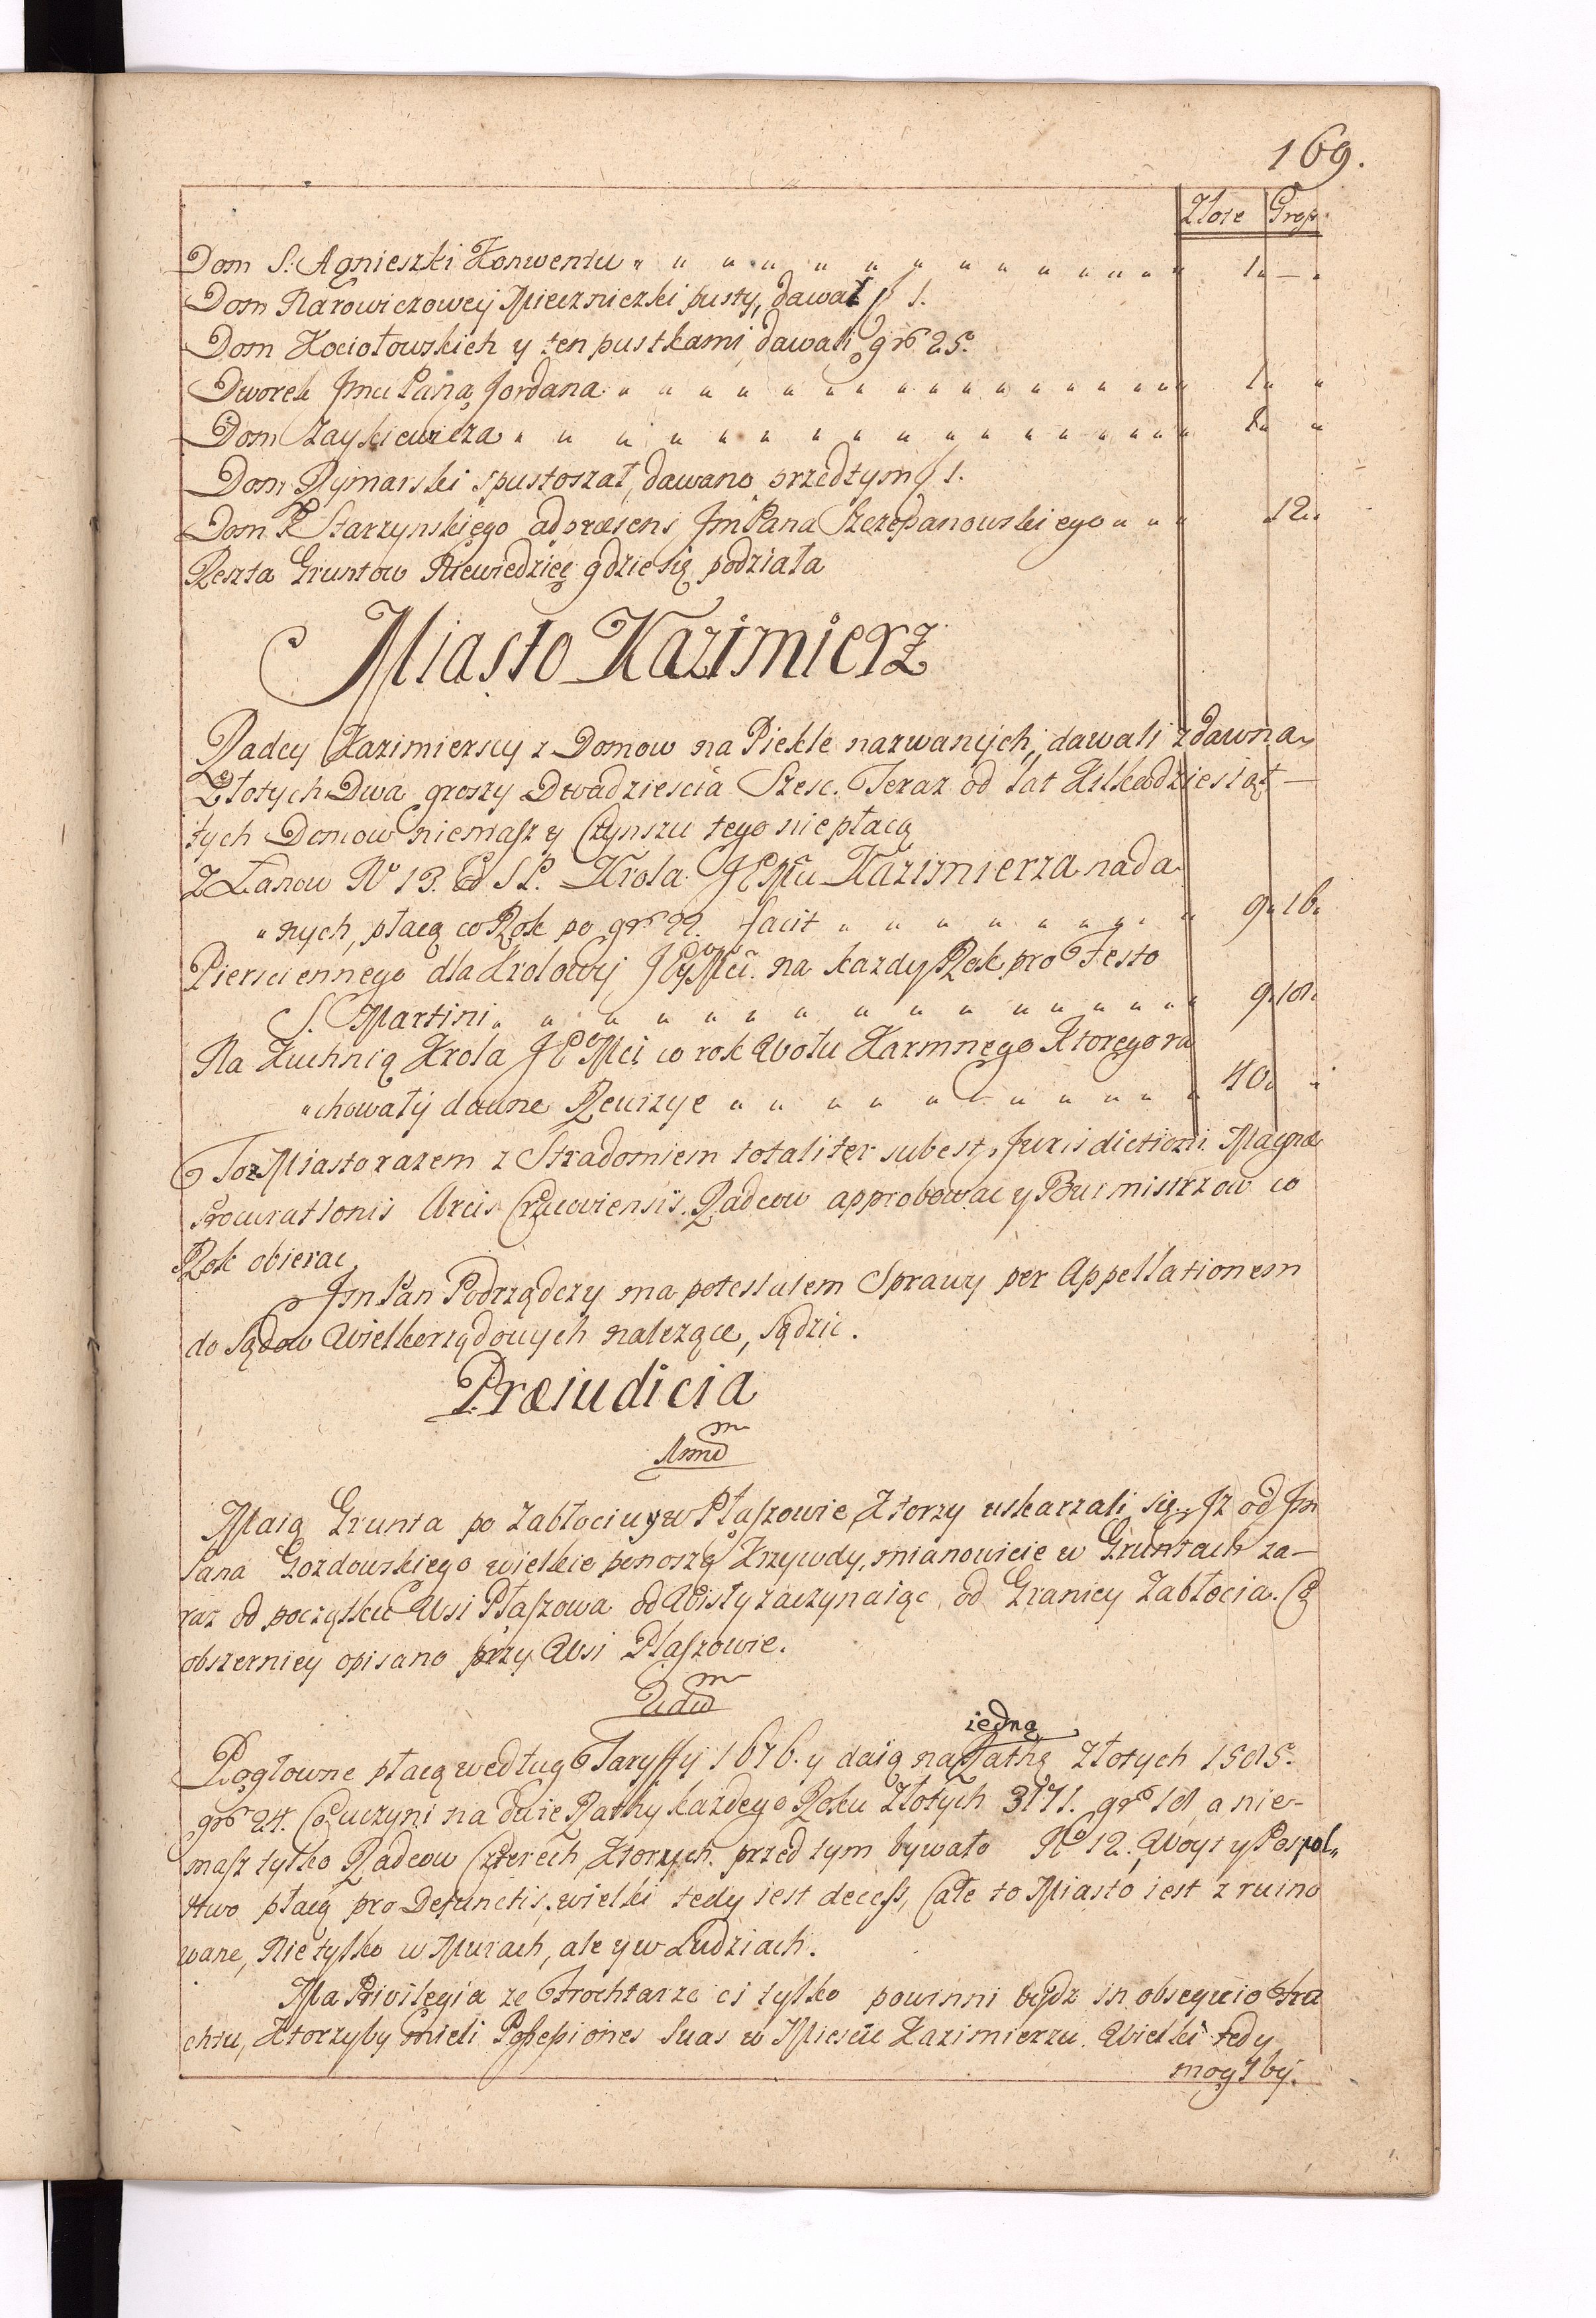 169.
Złote Grosz
Dom S. Agnieszki Konwentu " " " " " " " " " " " " " 1 " — "
Dom Narowiczowey Mieczniczki pusty, dawał f 1.
Dom Kociołowskich y ten pustkami, dawali grō 25.
Dworek Jmci Pana Jordana " " " " " " " " " " " " " " 1 " "
Dom Zayskiewicza " " " " " " " " " " " " " " " " 1 " "
Dom Rymarski spustoszał, dawano przedtym f 1.
Dom P. Starzynskiego ad præsens Jm Pana Szczepanowskiego " " " 12 "
Reszta Gruntow Niewiedzieć gdzie się podziała
Miasto Kazimierz
Radcy Kazimierscy z Domow na Piekle nazwanych, dawali zdawna
Złotych Dwa groszy Dwadziescia Szesc. Teraz od lat Kilkadziesiąt —
tych Domow niemasz y Czynszu tego nie płacą
Z Łanow No 13. Od S P. Krola JEo Mci Kazimierza nada
" nych, płacą co Rok po grō 22. facit " " " " " " " " 9 " 16 "
Piersciennego dla Krolowy JEy Mci. na kazdy Rok pro Festo
S. Martini " " " " " " " " " " " " " 9 " 18 "
Na Kuchnią Krola JEo Mci co rok Wołu Karmnego Ktorego ra
" chowały dawne Rewizye " " " " " " " " " " 40 " "
Toz Miasto razem z Stradomiem totaliter subest Jurisdictioni Magnæ
Procurationis Arcis Cracoviensis. Radcow approbowac y Burmistrzow co
Rok obierac
Jm Pan Podrządczy ma potestatem Sprawy per Appellationem
do Sądow Wielkorządowych nalezące, sądzic.
Præiudicia
1mo
Maią Grunta po Zabłociu y w Płaszowie, Ktorzy uskarzali się, Jz od Jm
Pana Gozdowskiego wielkie ponoszą Krzywdy, mianowicie w Gruntach za-
raz od początku Wsi Płaszowa od Wisły zaczynaiąc od Granicy Zabłocia. Co
obszerniey opisano przy Wsi Płaszowie.
2do
iedną
Pogłowne płacą według Taryffy 1676. y daią na Rathę Złotych 1585.
grō 24. Co uczyni na dwie Rathy kazdego Roku Złotych 3171. grō 18 a nie-
masz tylko Radcow Czterech, Ktorych przed tym bywało No 12. Woyt y Pospol "
stwo płacą pro Defunctis. wielki tedy iest decess, Całe to Miasto iest z ruino
wane, Nie tylko w Murach, ale y w Ludziach.
Ma Privilegia ze Frochtarze ci tylko powinni bydz in obsequio Fra
chtu, Ktorzyby mieli Possessiones Suas w Miescie Kazimierzu. Wielki tedy
mogłby.